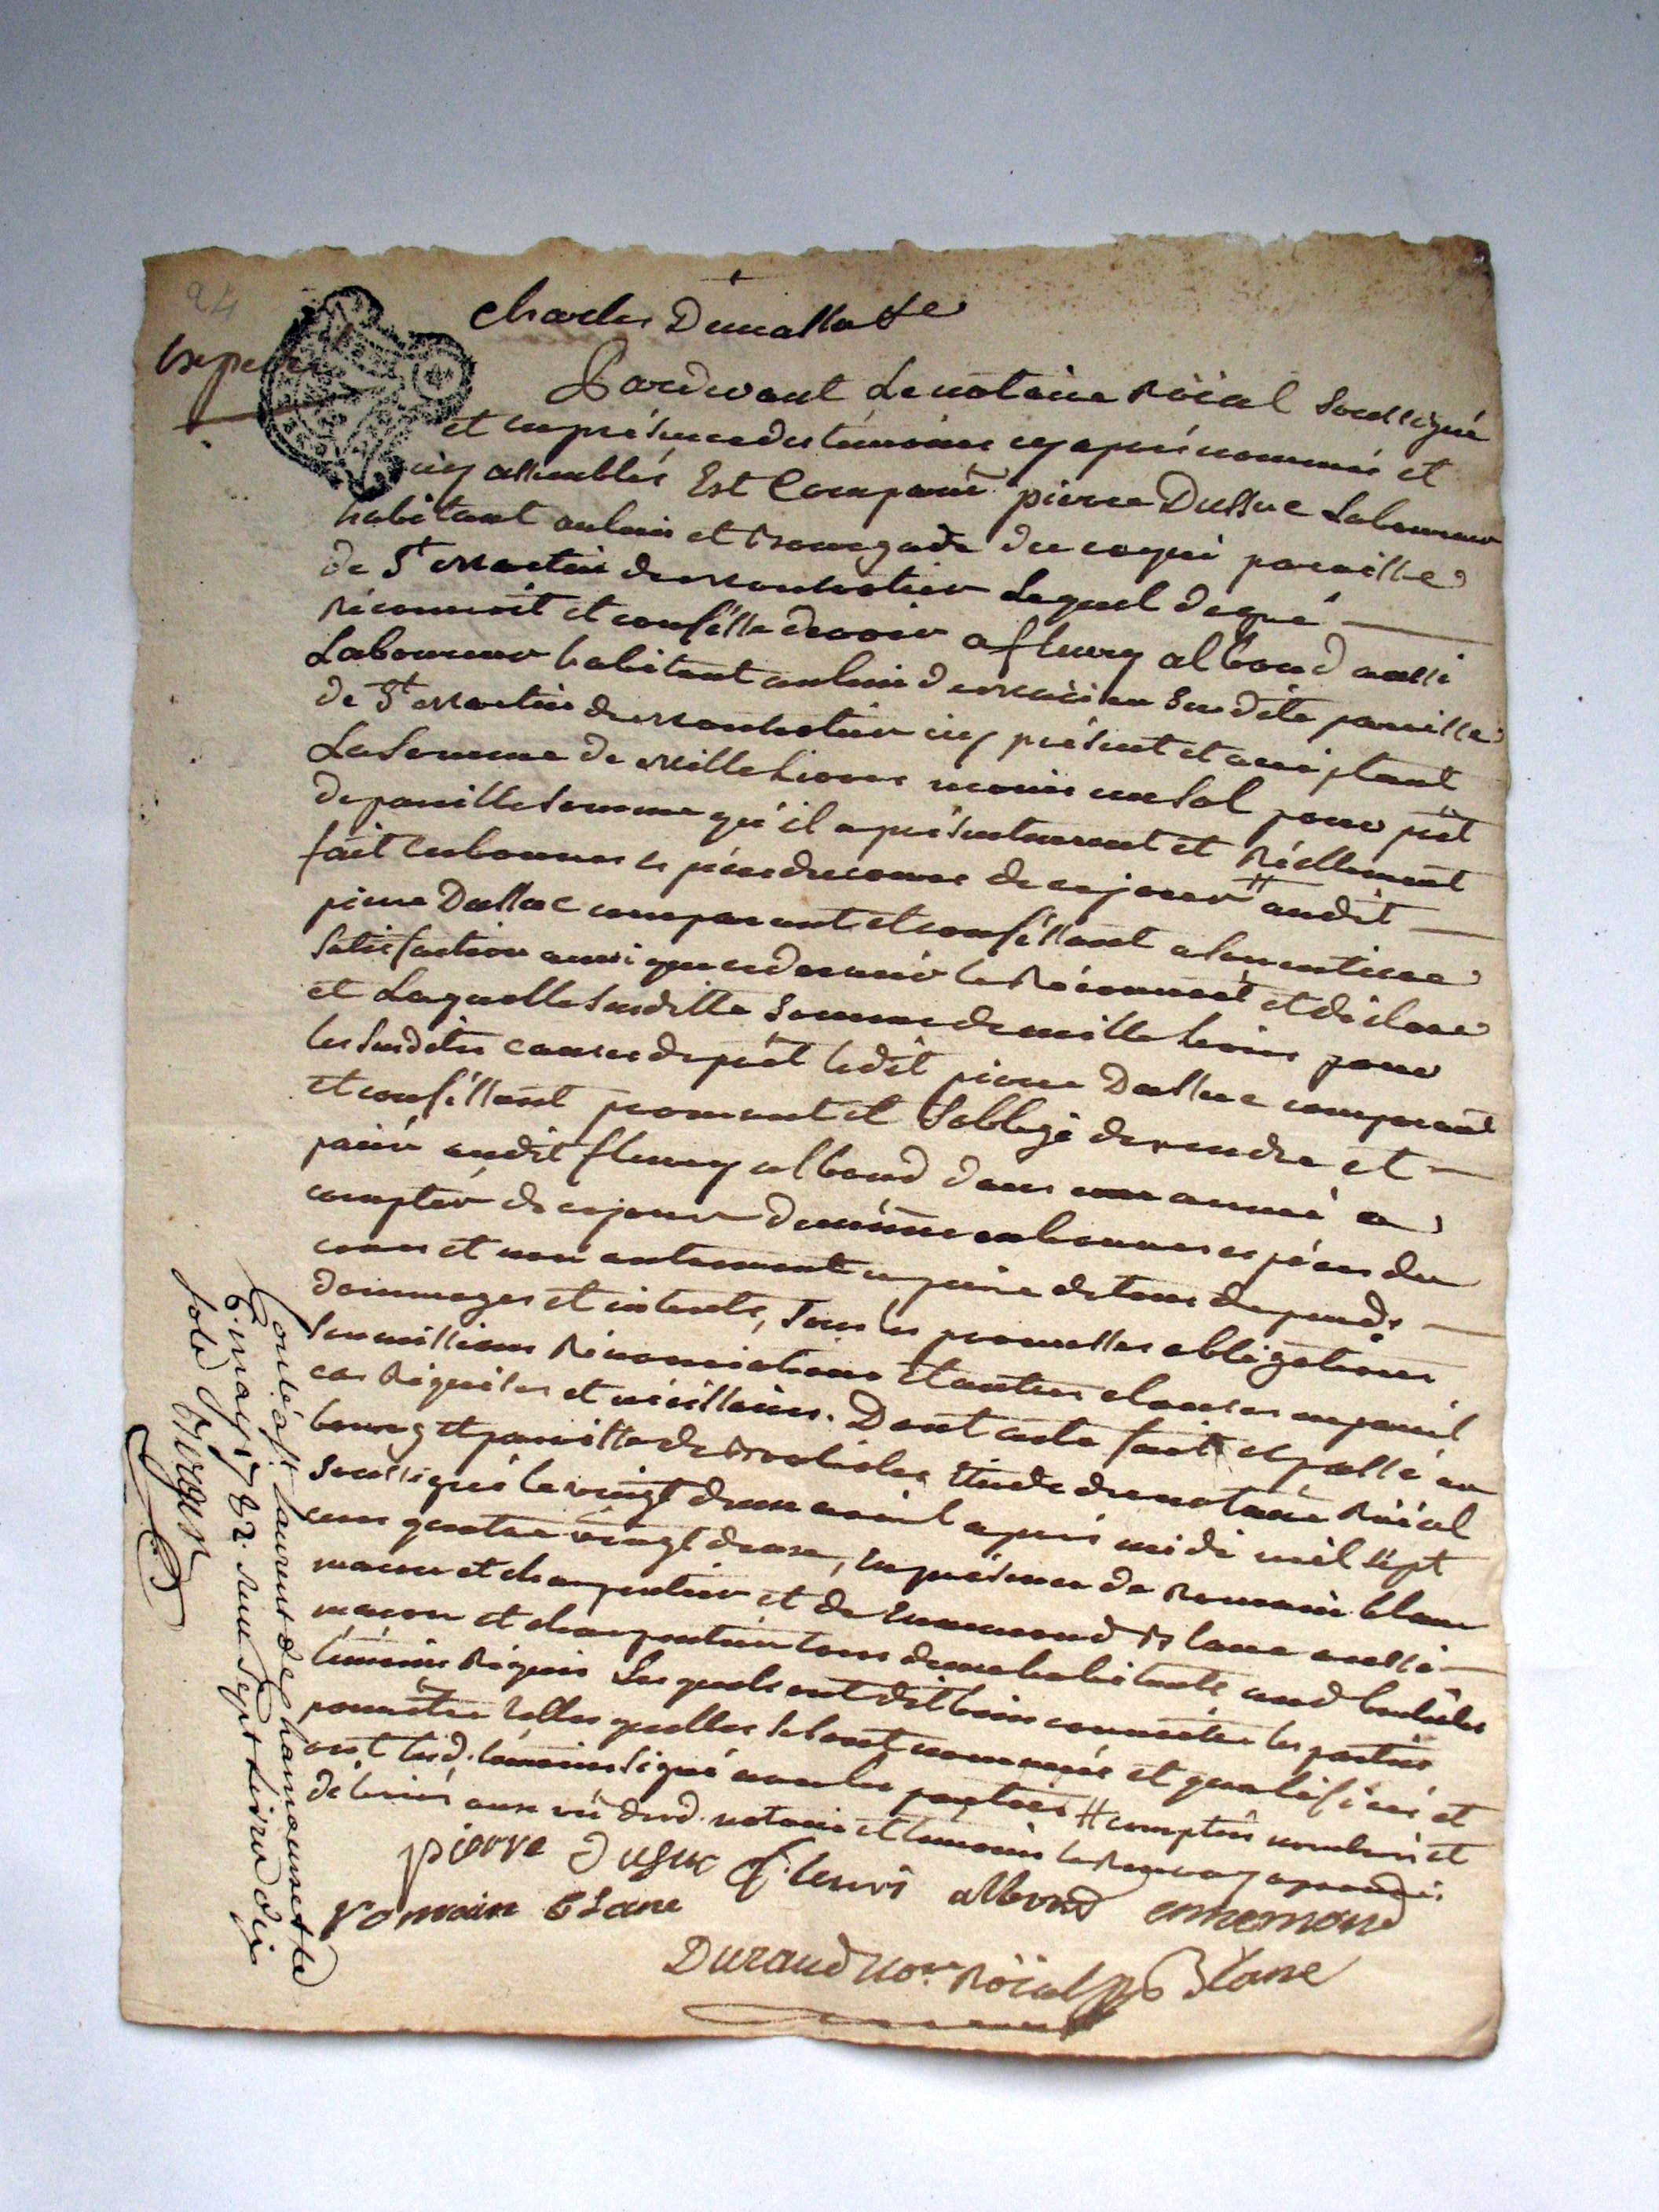 24
charles Dumalatte
Pardevant Le notaire Röial Soussigné
et en présence des témoins cy apres nommés et
icy assemblés Est Comparû pierre Dussuc Laboureur
habitant au lieu et du coqui paroisse
de St Martin Lequel de gré
réconnoit et confésse devoir a fleury alboud aussi
Laboureur habitant au lieu de en Susdite paroisse
de St Martin icy présent et acceptant
La Somme de Mille Livres moins un Sol pour prêt
de pareille Somme qu'il a présentement et Réellement
fait en bonnes espéces du cours de ce jour # audit
pierre Dussuc comparant et conféssant a son entiere
Satisfaction ainsi que ce dernier le Réconnoit et déclare
et Laquelle Susditte Somme de mille Livres pour
les Susdites causes de prêt ledit pierre Dussuc comparant
et conféssant proment et S'obligé de rendre et
païer audit fleury alboud dans une année a
compter de ce jour en bonnes espéces du
cours et non autrement a peine de tous dépends
dommages et interets, Sous les promesses obligations
Soumissions Rénonciations et autres clauses en pareil
cas Réquises et nécéssaires. Dont acte fait et passé au
bourg et paroisse de Etude du notaire Röial
Soussigné le vingt deux avril apres midi mil sept
cens quatre vingt deux, En présence de Romain blanc
macon et charpentier et de Ennemond Blanc aussi
maçon et charpentier tous deux habitants aud
témoins Réquis Lesquels ont dit bien connoitre les parties
pour être telles quelles Se Sont nommées et qualifiées et
ont lesd. témoins Signé avec les parties # comptées nombrées et
délivrés aux vû dud. notaire et témoins
pierre dusuc fleuri alboud ennemond
romain blanc
Durand nore. Röial Blanc
Controlé a St laurent de chamousset le
6. may 1782. reçu Sept Livres dix
sols